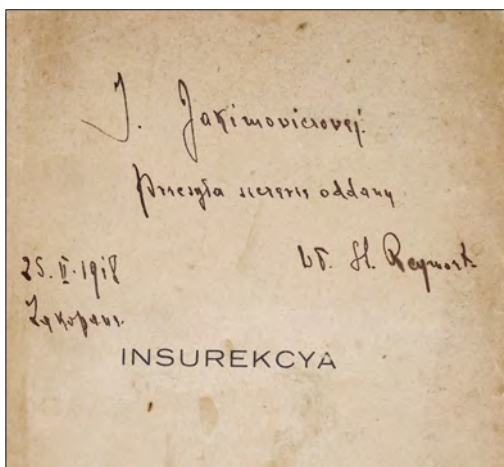 J. Jakimowiczowej.
Przesyła szczerze oddany
Wł. St. Reymont
25.II.1918
Zakopane.
INSUREKCYA